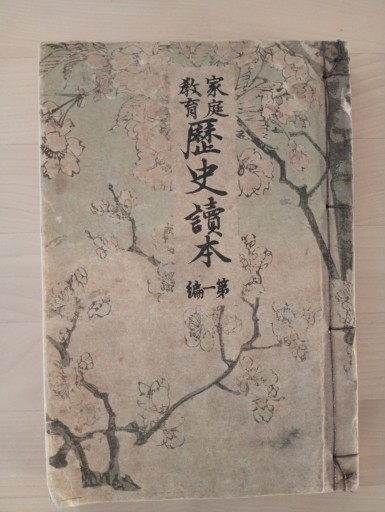 家庭
教育
歴史讀本
第一編